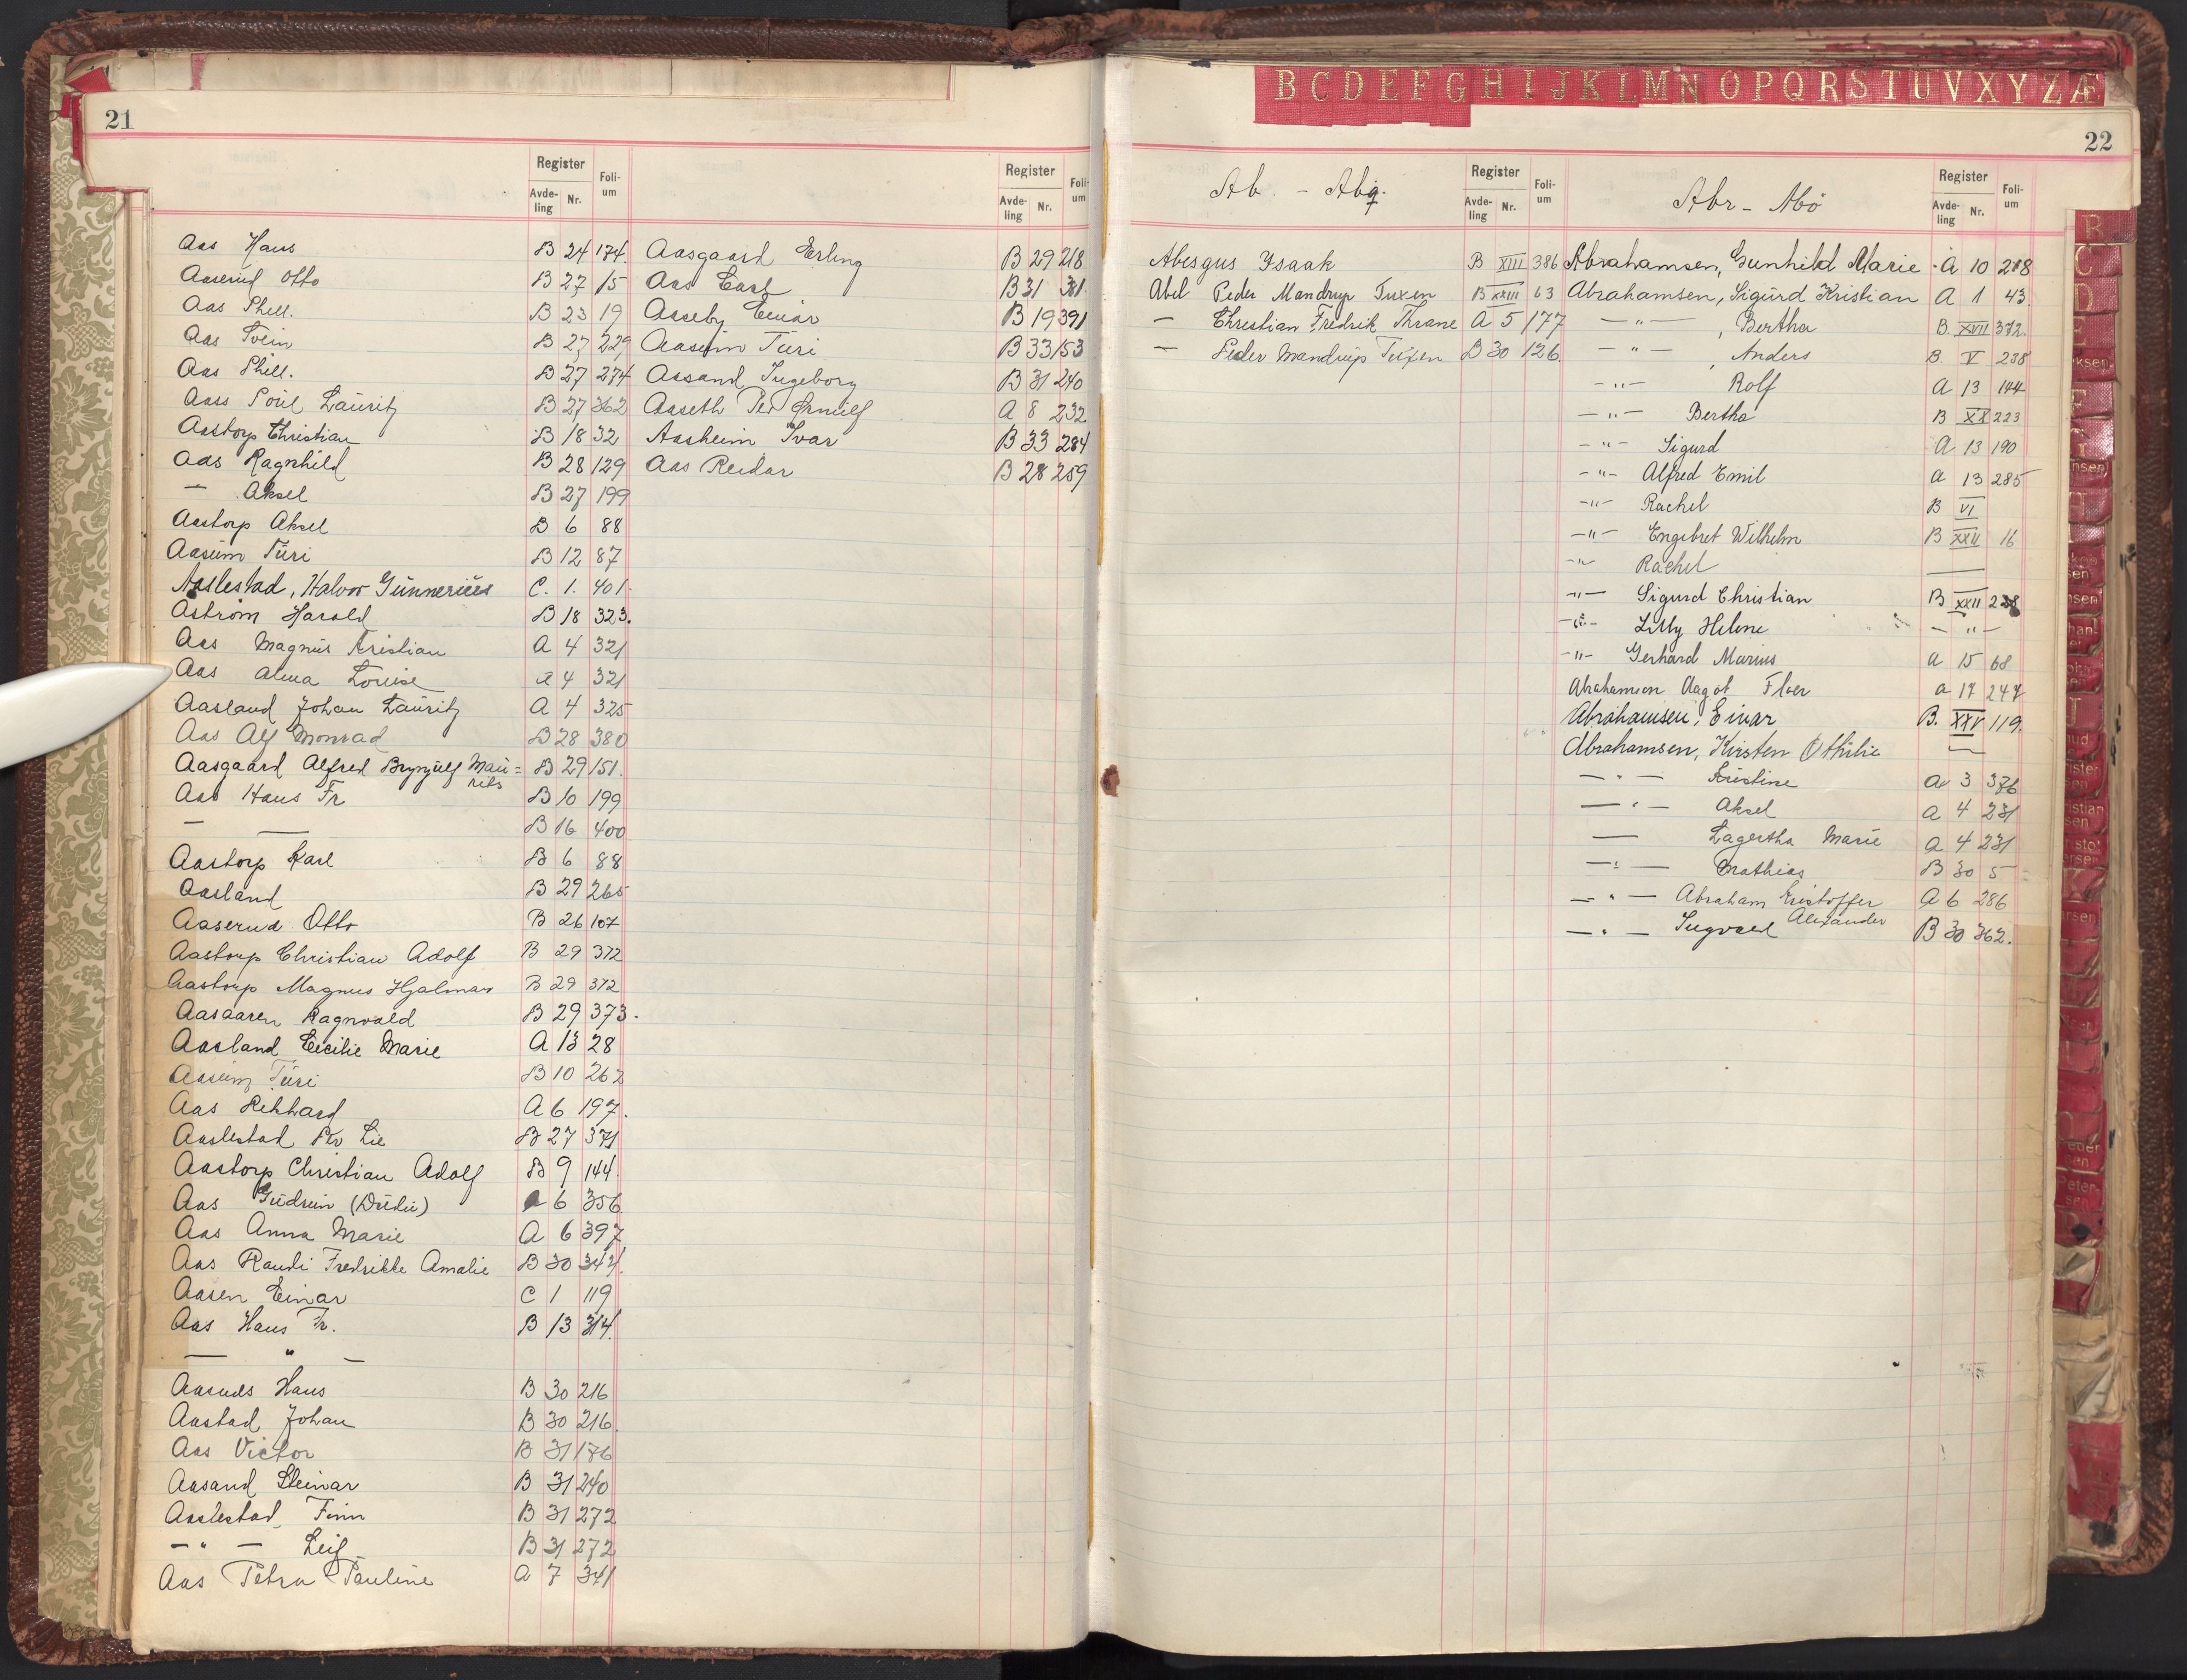 21
Register
Foli-
um
Avde-
ling
Nr.
Aas Hans B 24 174
Aaserud Otto B 27 15
Aas Phill. B 23 19
Aas Svein B 27 229
Aas Phill. B 27 274
Aass Poul Lauritz B 27 362
Aastorp Christian B 18 32
Aas Ragnhild B 28 129
— Aksel B 27 199
Aastorp Aksel B 6 88
Aasum Turi B 12 87
Aaslestad, Halvor C. 1. 401
Åström Harald B 18 323.
Aas Magnus Kristian A 4 321
Aas Alma Louise A 4 321
Aasland Johan Lauritz A 4 325
Aas Alf Monrad B 28 380
Aasgaard Alfred Brynjulf Mau= B 29 151.
rits
Aas Hans Fr B 10 199
— — B 16 400
Aastorp Karl B 6 88
Aasland B 29 265
Aaserud Otto B 26 107
Aastorp Christian Adolf B 29 372
Aastorp Magnus Hjalmar B 29 372
Aasaaren Ragnvald B 29 373.
Aasland Cecilie Marie A 13 28
Aasum Turi B 10 262
Aas Rikhard A 6 197.
Aaslestad Lie B 27 371
Aastorp Christian Adolf B 9 144.
Aas Gudrun A 6 356
Aas Anna Marie A 6 397
Aas Randi Fredrikke Amalie B 30 344.
Aasen Einar C 1 119
Aas Hans Fr. B 13 314.
— " —
Hans B 30 216
Aastad Johan B 30 216.
Aas Victor B 31 176
Aasand Steinar B 31 240
Aaslestad, Finn B 31 272
— " — Leif B 31 272
Aas Petra Pauline A 7 341
Register
Foli-
um
Avde-
ling
Nr.
Aasgaard Erling B 29 218
Aas Carl B 31 381
Aaseby Einar B 19 391
Aasum Turi B 33 153
Aasand Ingeborg B 31 240
Aaseth Per A 8 232
Aasheim Ivar B 33 284
Aas Reidar B 28 259
B C D E F G H I J K L M N O P Q R S T U V X Y Z Æ
22
Ab. - Abq.
Register
Foli-
um
Avde-
ling
Nr.
Abesgus Isaak B XIII 386
Abel Peder Mandrup Tuxen B XXIII 63
— Christian Fredrik Thrane A 5 177
— Peder Mandrup Tuxen B 30 126
Abr - Abö
Register
Foli-
um
Avde-
ling
Nr.
Abrahamsen, Gunhild Marie A 10 218
Abrahamsen, Sigurd Kristian A 1 43.
— " — , Bertha B. XVII 372.
— " — , Anders B. V 238
— " — Rolf A 13 144
— " — Bertha B XX 223
— " — Sigurd A 13 190
— " — Alfred Emil A 13 285
— " — Rachel B VI
— " — Engebret Wilhelm B XXII 16
— " Rachel —
— " — Sigurd Christian B XXII
— " — Lilly Helene — " —
— " — Gerhard Marius A 15 68
Abrahamsen Aagot Floer A 17 247
Abrahamsen, Einar B. XXV 119.
Abrahamsen, Kirsten Othilie —
— " — Kristine A 3 376
— " — Aksel A 4 231
— Lagertha Marie A 4 231
— " — Mathias B 30 5
— " — Abraham Kristoffer A 6 286
Alexander
— " — Ingvald B 30 362.